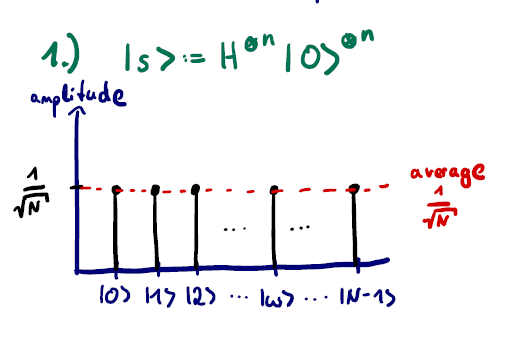 1.) |s> := H⊗n |0>⊗n
amplitude
1/√N
average
1/√N
... ...
|0> |1> |2> ... |ω> ... |N-1>